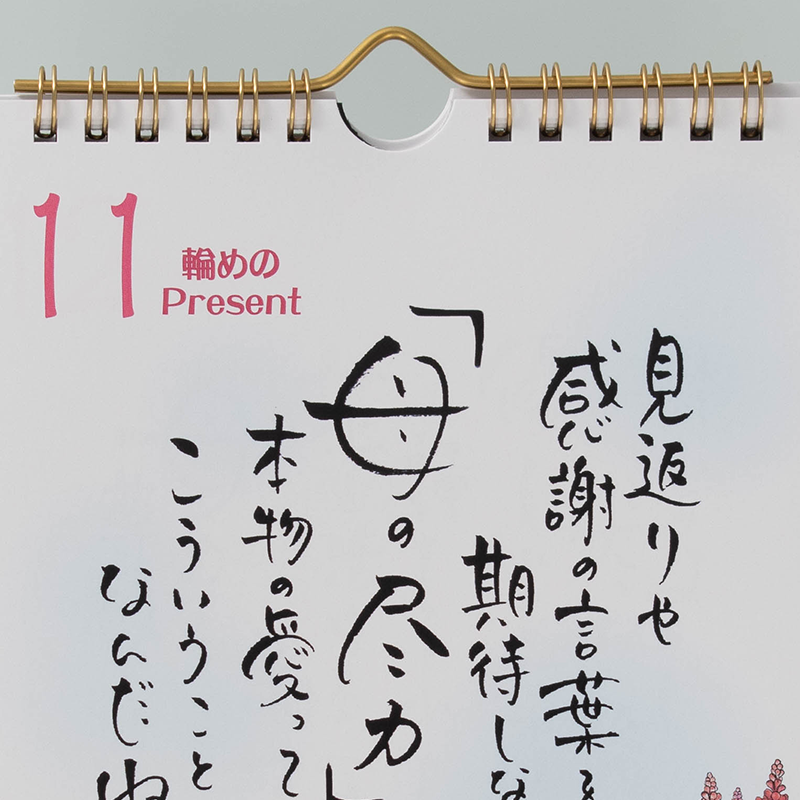 11
輪めの
Present
見返りや
感謝の言葉を
期待しな
「母の尽力」
本物の愛って
こういうこと
なんだね